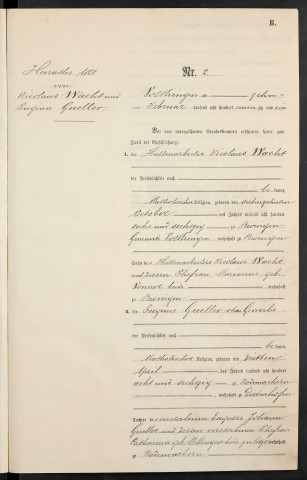 B.
Heirats Akt
von
Nicolaus Wachs und
Eugenie Gueller
Nr. 2
Volkringen am zehn
Februar tausend acht hundert neunzig und
Vor dem unterzeichneten Standesbeamten erschienen heute zum
Zweck der Eheschließung:
1. der Hüttenarbeiter Nicolaus Wachs
der Persönlichkeit nach
be kannt,
katholischer Religion, geboren den siebenzehnten
October des Jahres tausend acht hundert
sechs und sechszig zu Bevingen
Gemeinde Volkringen, wohnhaft zu Bevingen
Sohn des Hüttenarbeiters Nicolaus Wachs
und dessen Ehefrau Marianne geb.
beide wohnhaft
zu Bevingen
2. die Eugenie Gueller ohne Gewerbe
der Persönlichkeit nach
be kannt,
katholischer Religion, geboren den dritten
April des Jahres tausend acht hundert
acht und sechszig zu Rodemachern
wohnhaft zu Diedenhofen
Tochter des verstorbenen Johann
Gueller und dessen verstorbenen Ehefrau
Catharina geb. beide zuletzt wohnhaft
zu Rodemachern